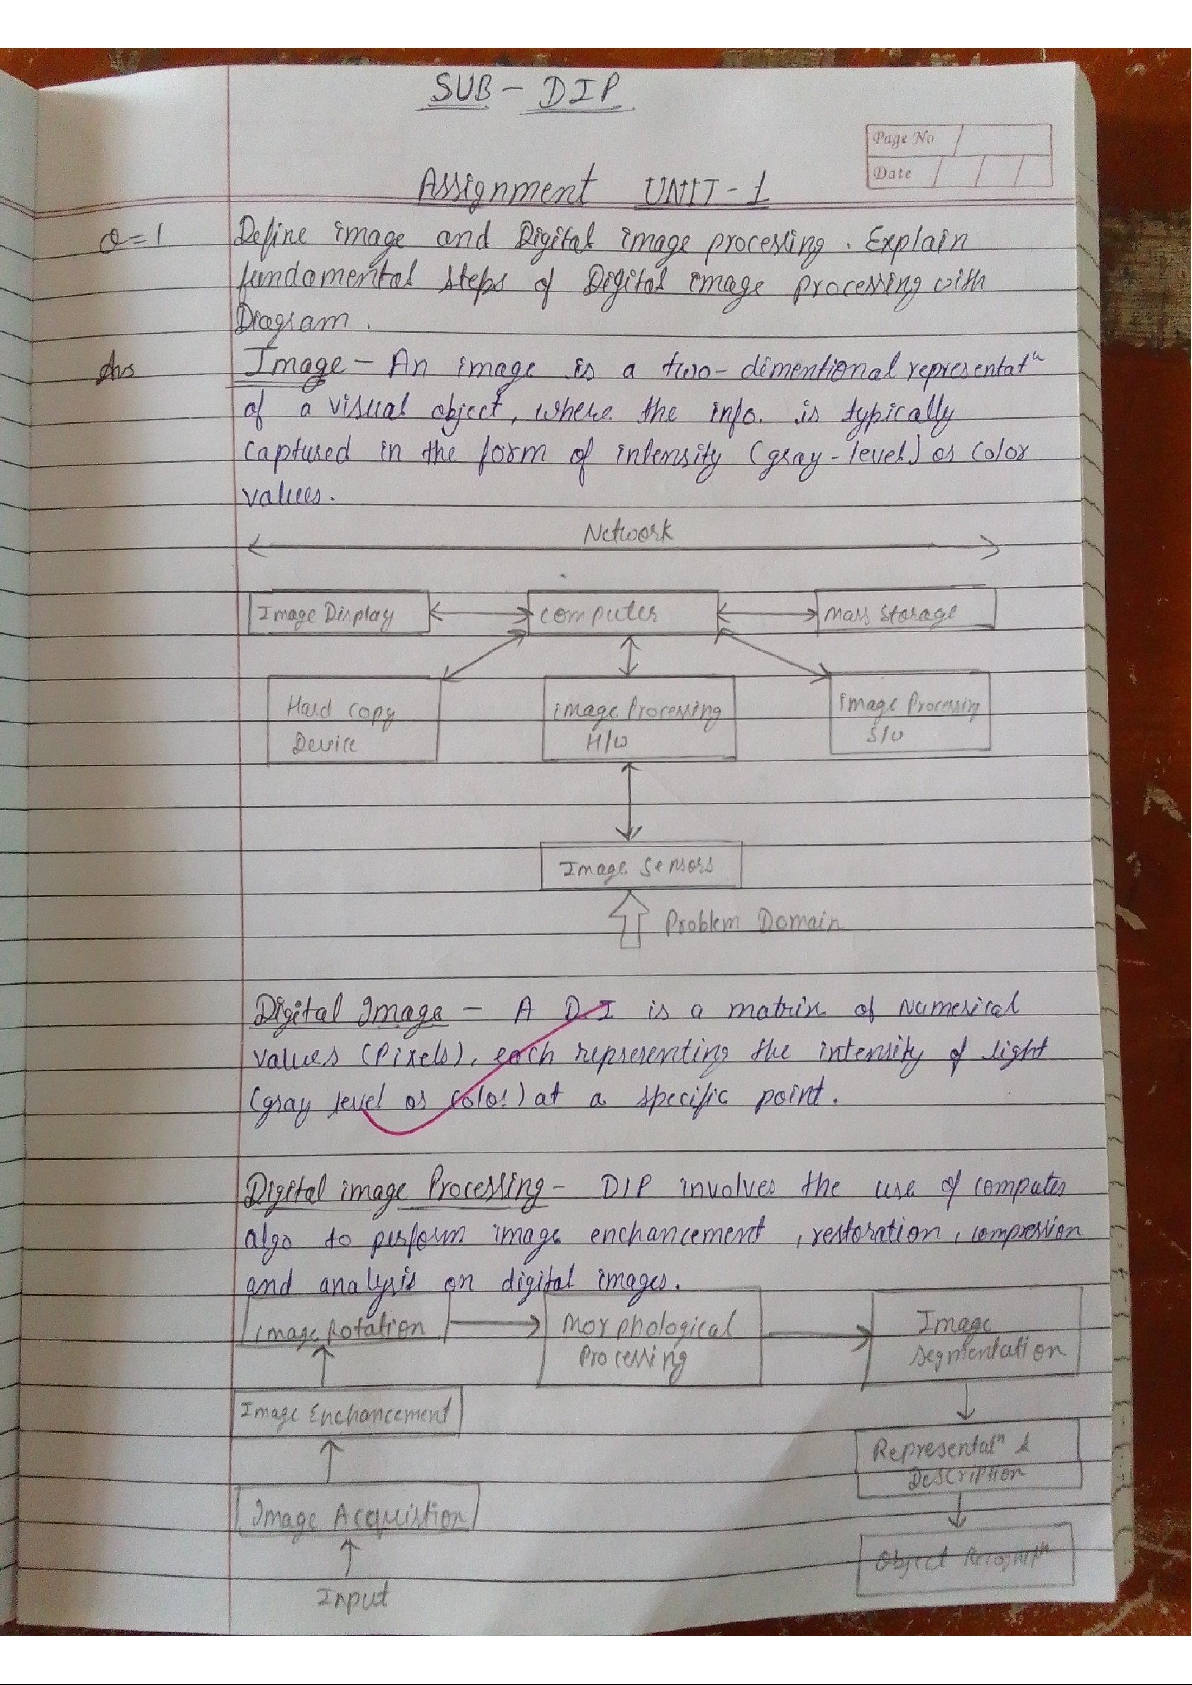 SUB - DIP
Page No
Date
Assignment UNIT - 1
Q=1 Define image and Digital image processing. Explain
fundamental steps of Digital image processing with
Diagram.
Ans Image - An image is a two-dimentional representatⁿ
of a visual object, where the info. is typically
captured in the form of intensity (gray-level) or color
values.
Network
Image Display computer Mass Storage
Hard copy image Processing image Processing
Device H/W S/W
Image Sensors
Problem Domain
Digital Image - A D.I is a matrix of Numerical
values (Pixels), each representing the intensity of light
(gray level or color) at a specific point.
Digital image Processing - DIP involves the use of computer
algo to perform image enchancement, restoration, compression
and analysis on digital images.
image Rotation Morphological Image
Processing Segmentation
Image Enchancement
Representatⁿ &
Description
Image Acquistion
Object Recogniᵗⁿ
Input